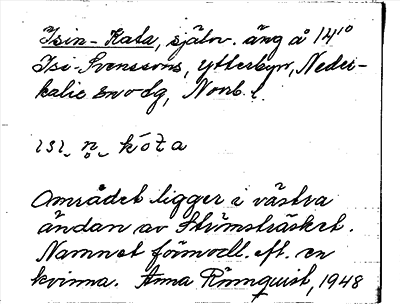 Isin-Kata, självv. äng å 14¹⁰
Isi-Svenssons, Ytterbyn, Neder-
kalix sn o dg, Norrb. l.
ısı. n̥. kóta
Området ligger i västra
ändan av Strömsträsket.
Namnet förmodl. eft. en
kvinna. Anna Rönnquist, 1948